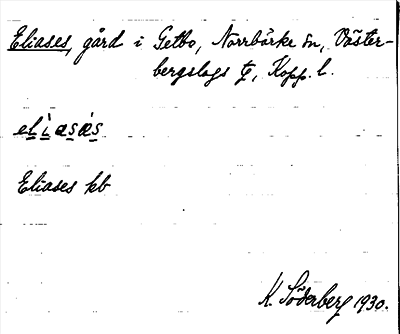 Eliases, gård i Getbo, Norrbärke sn, Väster-
bergslags tg, Kopp. l.
elìasàs
Eliases kb
K. Söderberg 1930.